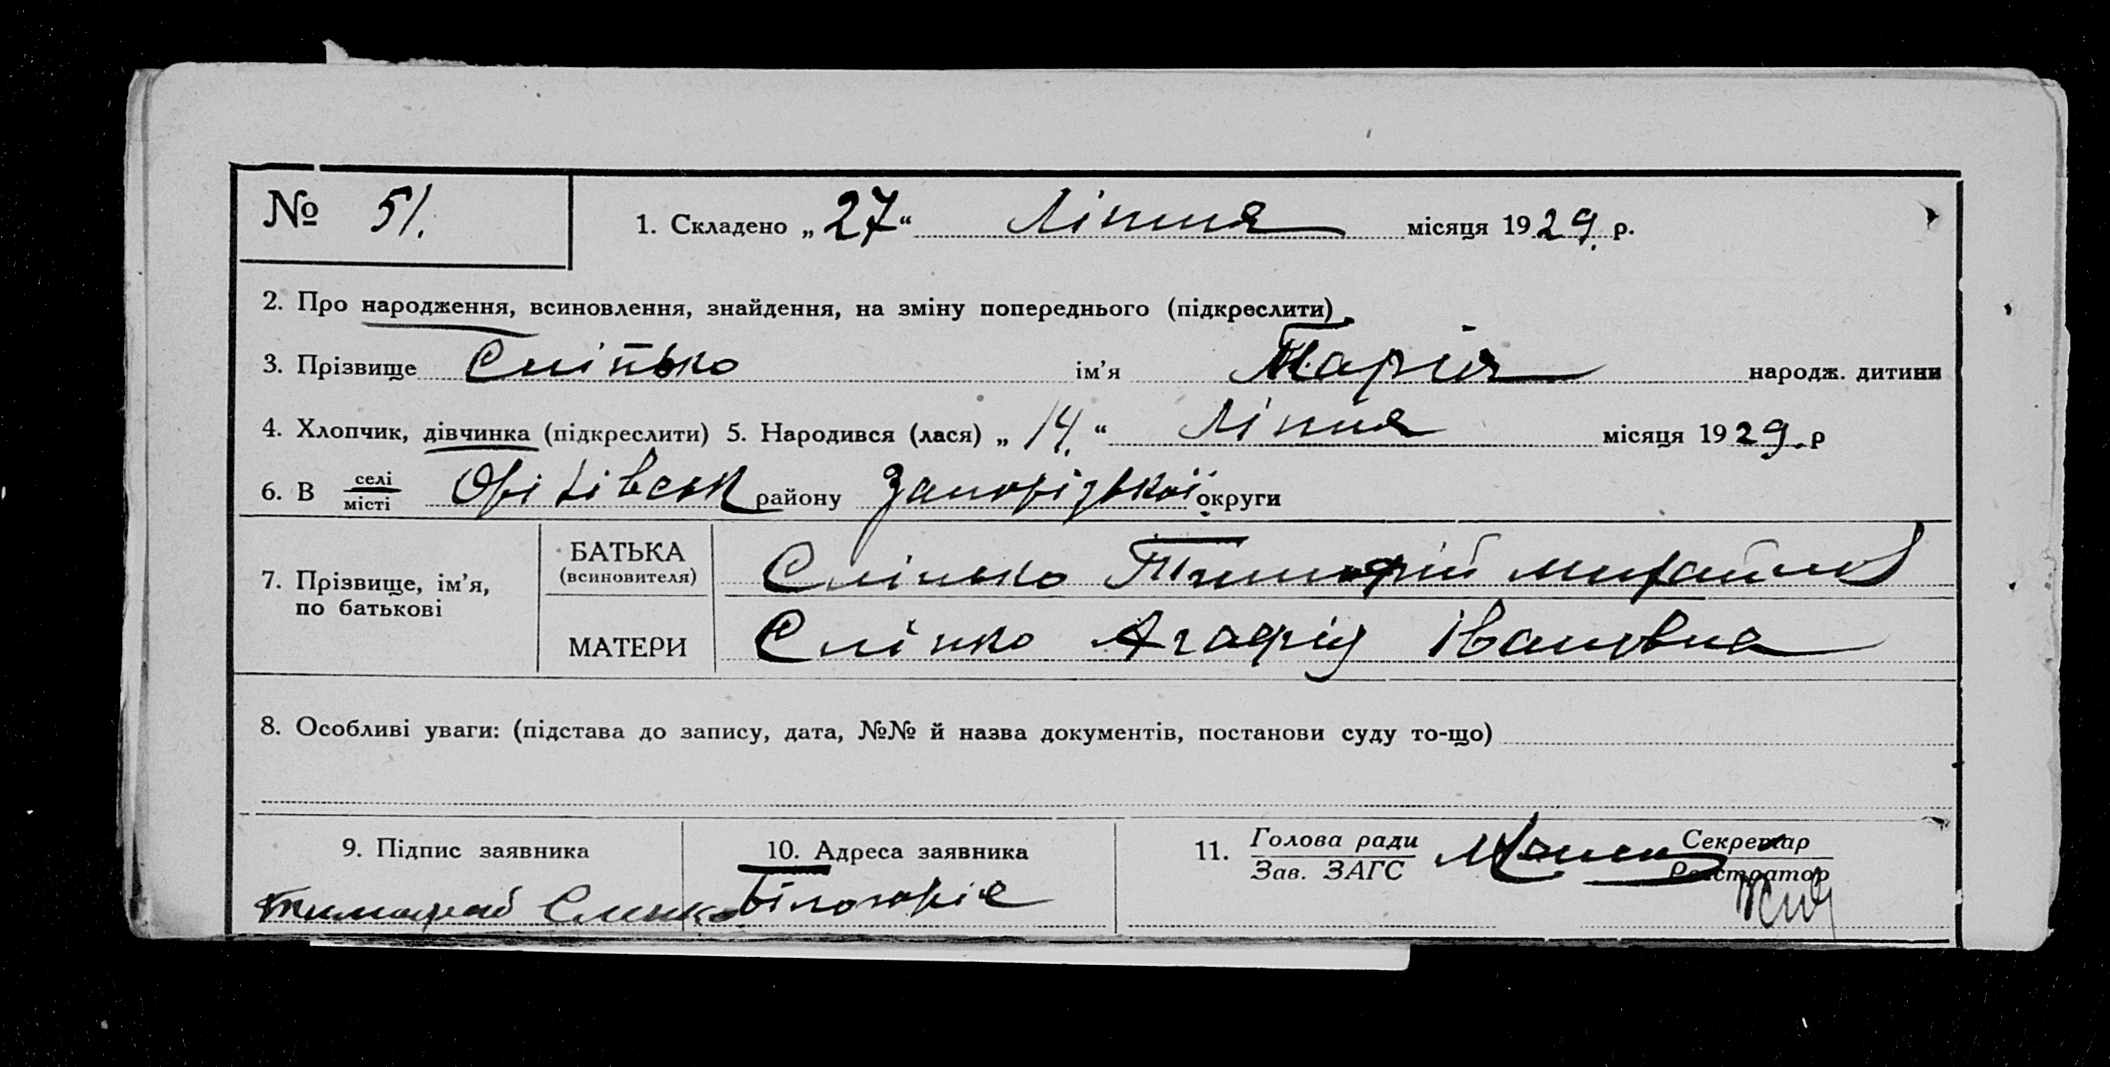 № 51. 1. Складено „27“ Ліпня місяця 1929. р.
2. Про народження, всиновлення, знайдення, на зміну попереднього (підкреслити)
3. Прізвище Сліпько ім’я Марія народж. дитини
4. Хлопчик, дівчинка (підкреслити) 5. Народився (лася) „14.“ Ліпня місяця 1929. р
6. В селі місті Оріхівськ району Запорізької округи
7. Прізвище, ім’я, по батькові
БАТЬКА (всиновителя) Сліпько Тимофій Михайлов
МАТЕРИ Сліпко Агафія Івановна
8. Особливі уваги: (підстава до запису, дата, №№ й назва документів, постанови суду то-що)
9. Підпис заявника 10. Адреса заявника 11. Голова ради Зав. ЗАГС Секретар Реєстратор
Тимофей Слипко Білогоріє